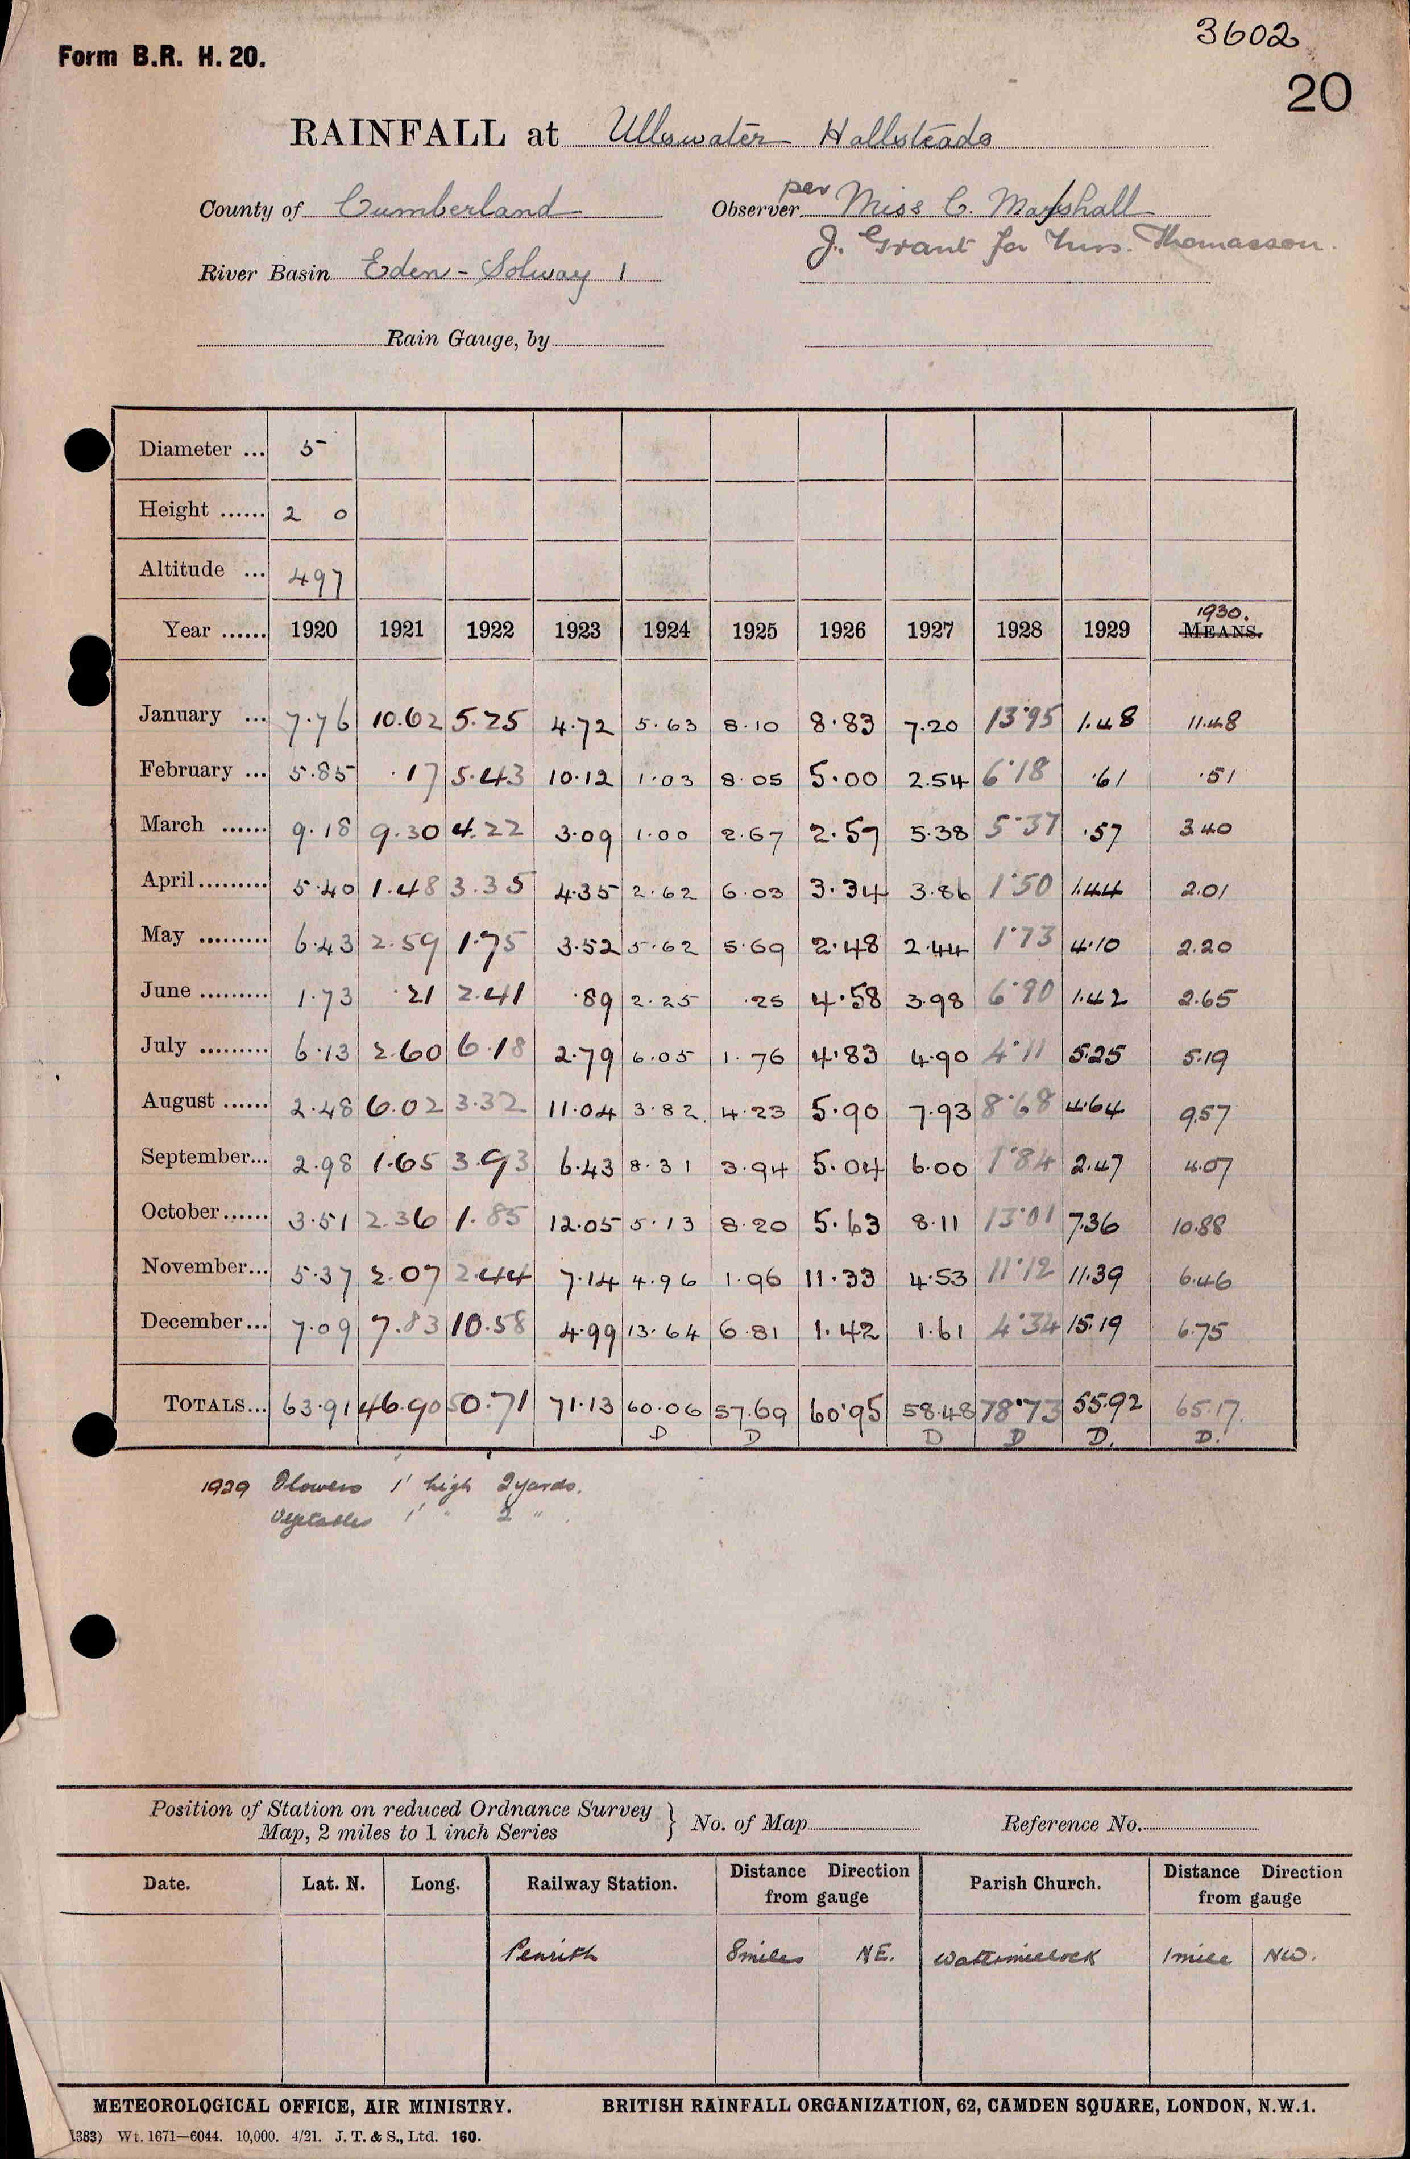 3602
Form B.R. H. 20.
20
RAINFALL at Ullswater Hallsteads
County of Cumberland Observer per Miss C. Marshall
J. Grant for Mrs. Thomasson.
River Basin Eden - Solway 1
Rain Gauge, by
Diameter ... 5
Height ...... 2 0
Altitude ... 497
1930.
Year ...... 1920 1921 1922 1923 1924 1925 1926 1927 1928 1929 MEANS.
January ... 7.76 10.62 5.25 4.72 5.63 8.10 8.83 7.20 13.95 1.48 11.48
February ... 5.85 .17 5.43 10.12 1.03 8.05 5.00 2.54 6.18 .61 .51
March ...... 9.18 9.30 4.22 3.09 1.00 2.67 2.57 5.38 5.37 .57 3.40
April ......... 5.40 1.48 3.35 4.35 2.62 6.03 3.34 3.86 1.50 1.44 2.01
May ......... 6.43 2.59 1.75 3.52 5.62 5.69 2.48 2.44 1.73 4.10 2.20
June ......... 1.73 .21 2.41 .89 2.25 .25 4.58 3.98 6.90 1.42 2.65
July ......... 6.13 2.60 6.18 2.79 6.05 1.76 4.83 4.90 4.11 5.25 5.19
August ...... 2.48 6.02 3.32 11.04 3.82 4.23 5.90 7.93 8.68 4.64 9.57
September... 2.98 1.65 3.93 6.43 8.31 3.94 5.04 6.00 1.84 2.47 4.07
October...... 3.51 2.36 1.85 12.05 5.13 8.20 5.63 8.11 13.01 7.36 10.88
November... 5.37 2.07 2.44 7.14 4.96 1.96 11.33 4.53 11.12 11.39 6.46
December... 7.09 7.83 10.58 4.99 13.64 6.81 1.42 1.61 4.34 15.19 6.75
TOTALS... 63.91 46.90 50.71 71.13 60.06 57.69 60.95 58.48 78.73 55.92 65.17
D D D D D. D.
1929 Flowers 1' high 2 yards.
Vegetables 1' " 2 " .
Position of Station on reduced Ordnance Survey
Map, 2 miles to 1 inch Series } No. of Map Reference No.
Date. Lat. N. Long. Railway Station. Distance Direction from gauge Parish Church. Distance Direction from gauge
Penrith 8 miles NE. Watermillock 1 mile NW.
METEOROLOGICAL OFFICE, AIR MINISTRY. BRITISH RAINFALL ORGANIZATION, 62, CAMDEN SQUARE, LONDON, N.W.1.
383) Wt. 1671—6044. 10,000. 4/21. J. T. & S., Ltd. 160.